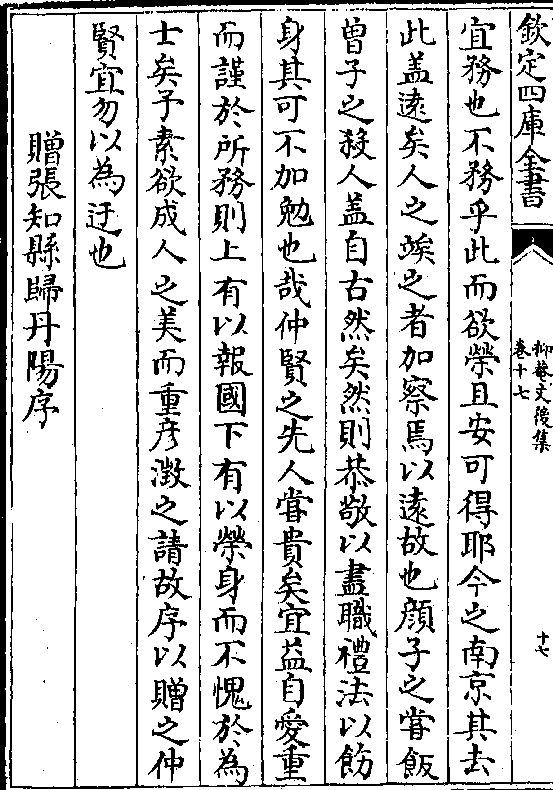 欽定四庫全書
抑菴文後集
卷十七
十七
宜務也不務乎此而欲榮且安可得耶今之南京其去
此盖遠矣人之竢之者加察焉以遠故也顔子之甞飯
曾子之殺人盖自古然矣然則恭敬以盡職禮法以飭
身其可不加勉也哉仲賢之先人甞貴矣宜益自愛重
而謹於所務則上有以報國下有以榮身而不愧於為
士矣予素欲成人之美而重彦澂之請故序以贈之仲
賢宜勿以為迂也
贈張知縣歸丹陽序